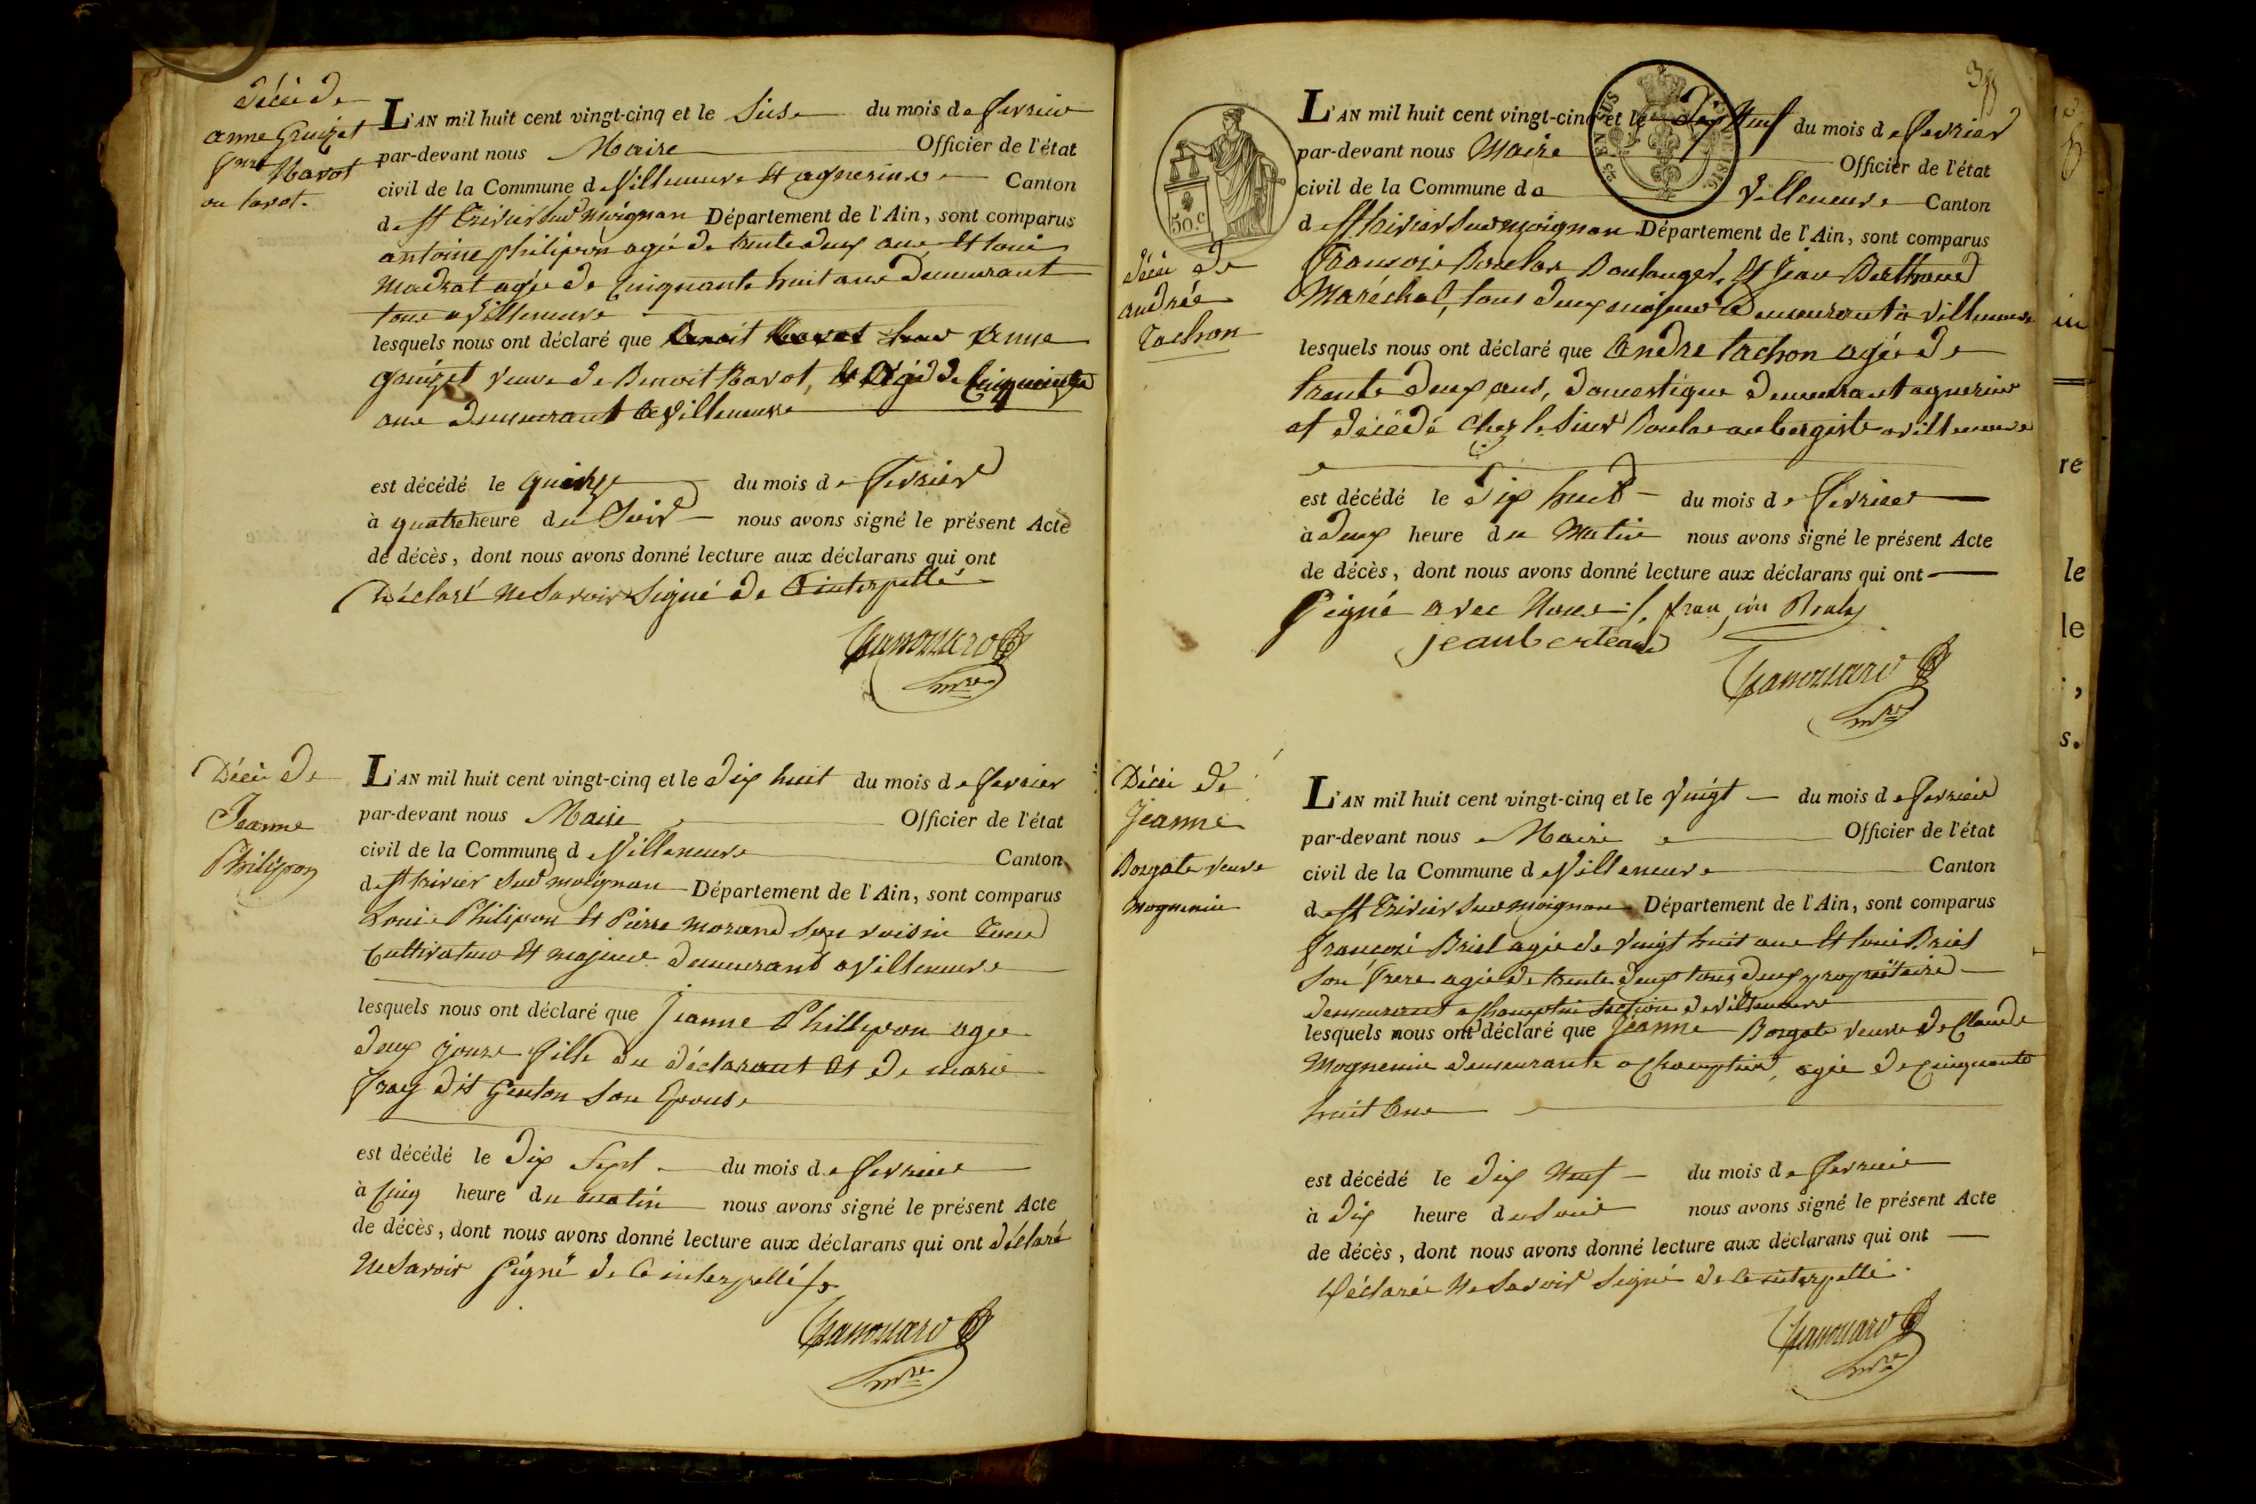 décès de
anne Gruizet
Ravot
ou tavot.
L'AN mil huit cent vingt-cinq et le Seise du mois de fevrier
par-devant nous Maire Officier de l'état
civil de la Commune de Villeneuve et agnerins Canton
de St Trivier sur Moignan Département de l'Ain, sont comparus
antoine philipon agé de trente deux ans et loui
Madrat agé de Cinquante huit ans Demeurant
tous a Villeneuve
lesquels nous ont déclaré que Anne
veuve de Benoit Ravot, agé de
ans demeurant a Villeneuve
est décédé le quinze du mois de fevrier
à quatre heure du Soir nous avons signé le présent Acte
de décès, dont nous avons donné lecture aux déclarans qui ont
Déclaré ne Savoir Signé de Ce interpellé
mre
Décès de
Jeanne
Philipon
L'AN mil huit cent vingt-cinq et le dix huit du mois de fevrier
par-devant nous Maire Officier de l'état
civil de la Commune de Villeneuve Canton
de St trivier sur moignan Département de l'Ain, sont comparus
Louis Philipon et Pierre morand son voisin tous
Cultivateur et majeur demeurant a Villeneuve
lesquels nous ont déclaré que jeanne Phillipon agee
deux jours fille du déclarant et de marie
fray dit Genton son Epouse
est décédé le dix Sept du mois de fevrier
à Cinq heure du matin nous avons signé le présent Acte
de décès, dont nous avons donné lecture aux déclarans qui ont déclaré
ne Savoir Signé de Ce interpellé
mre
L'AN mil huit cent vingt-cinq et le dix Neuf du mois de fevrier
par-devant nous Maire Officier de l'état
civil de la Commune de Villeneuve Canton
de St trivier sur moignan Département de l'Ain, sont comparus
50.c
décès de
andrée
tachon
françois Boulas Boulanger, et jean Berthaud
Maréchal, tous deux majeur Demeurant a villeneuve
lesquels nous ont déclaré que Andre tachon agée de
trante deux ans, domestique demeurant agnerins
et décédé chez le Sieur Boulas aubergiste a villeneuve
est décédé le dix huit du mois de fevrier
à deux heure du Matin nous avons signé le présent Acte
de décès, dont nous avons donné lecture aux déclarans qui ont
Signé avec Nous
mre
Décès de
Jeanne
Borgate veuve
mognenie
L'AN mil huit cent vingt-cinq et le vingt du mois de fevrier
par-devant nous Maire Officier de l'état
civil de la Commune de Villeneuve Canton
de St Trivier sur moignan Département de l'Ain, sont comparus
françois Briel agée de vingt huit ans et loui Briel
son frere agée de trente deux tous deux propriétaire
demeurant a section de villeneuve
lesquels nous ont déclaré que Jeanne Borgate veuve de Claude
Mognenie demeurante a agée de Cinquante
huit ans
est décédé le dix Neuf du mois de fevrier
à dix heure du Soir nous avons signé le présent Acte
de décès, dont nous avons donné lecture aux déclarans qui ont
Déclarée Ne Savoir Signé de Ce interpellé.
mre
re
le
le
,
s.